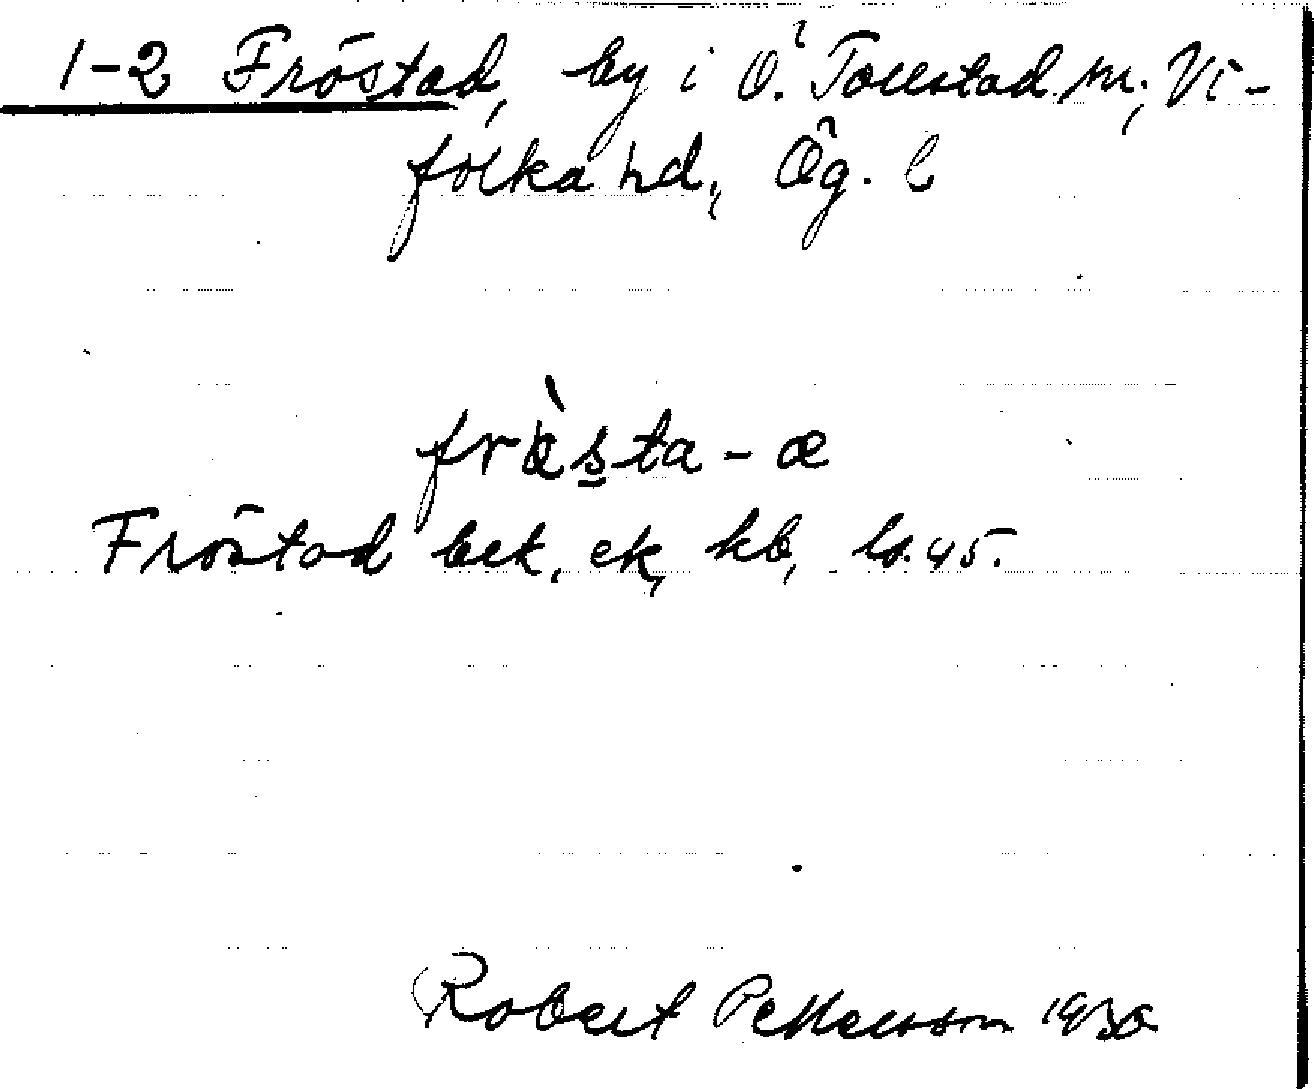 1-2 Fröstad, by i Ö. Tollstad sn, Vi-
folka hd, Ög. l
fràsta - æ
Fröstad bek, ek, kb, ld. 45.
Robert Pettersson 1930